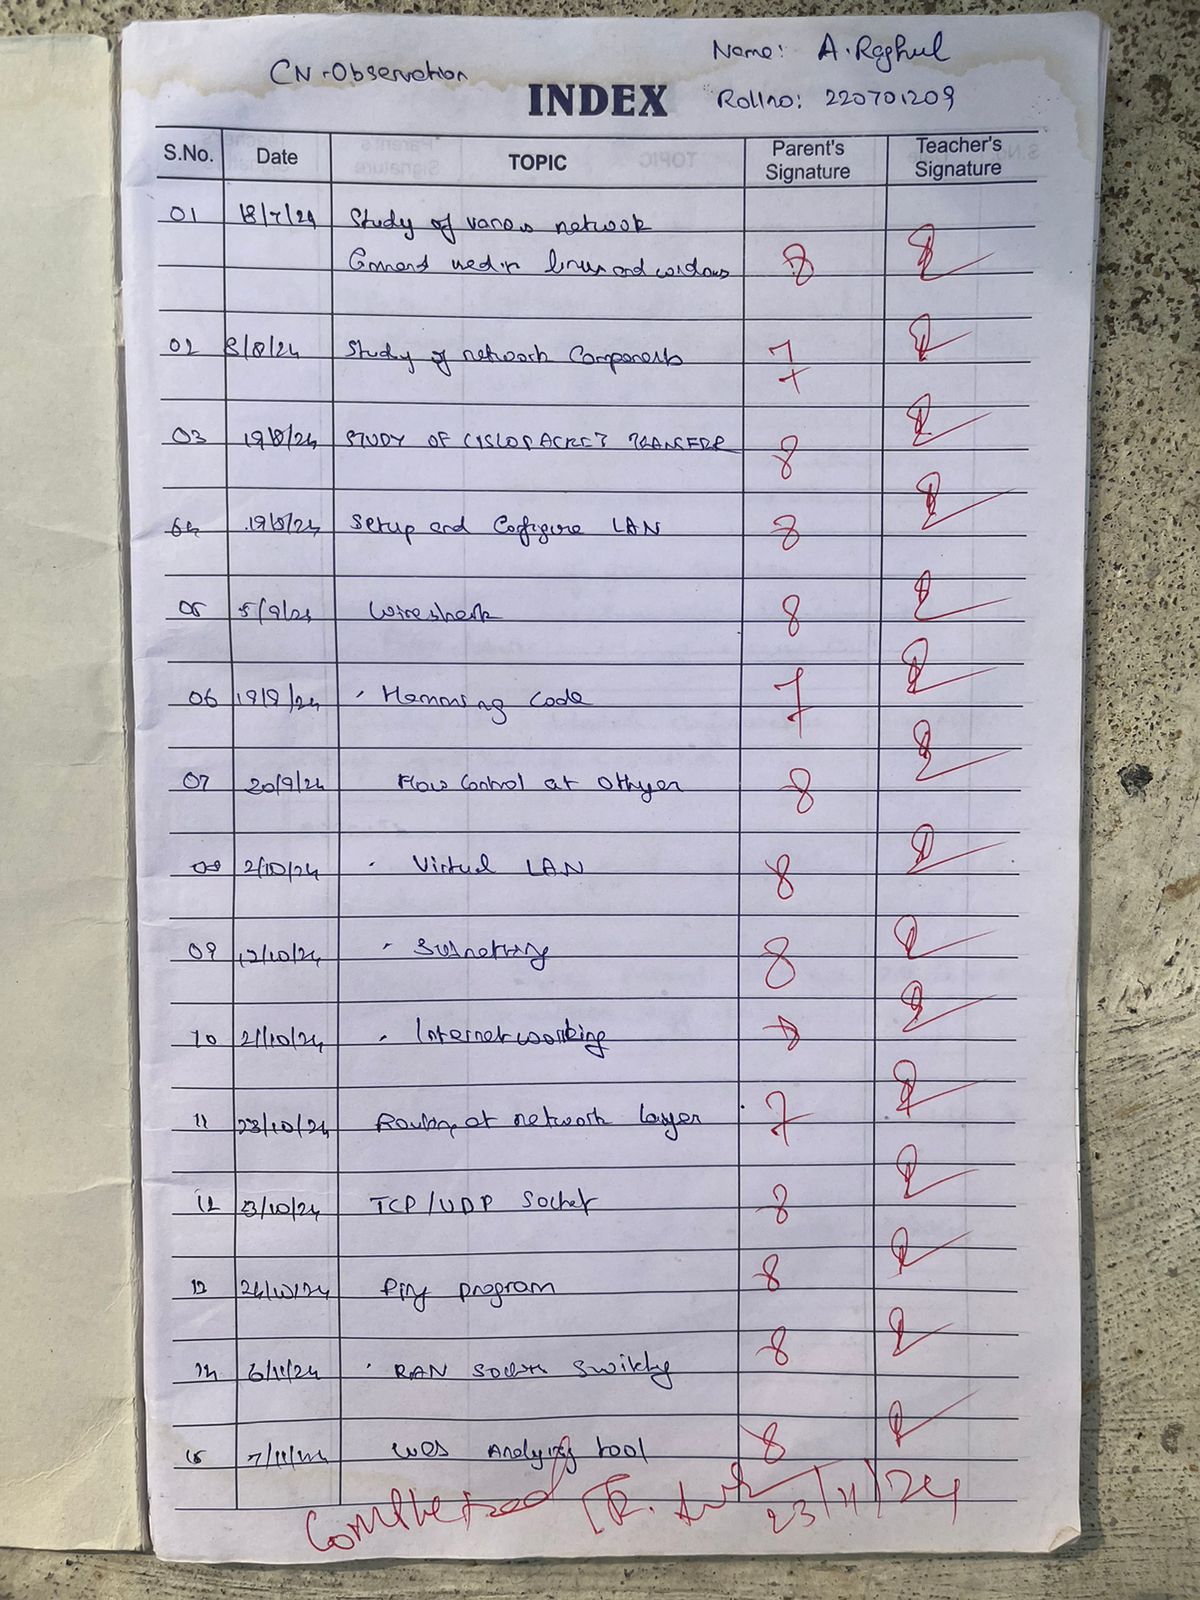 CN-Observation
Name: A.Raghul
INDEX
Rollno: 220701209
S.No. Date TOPIC Parent's Signature Teacher's Signature
01 18/7/24 Study of various network
Command used in linux and windows 8
02 8/8/24 Study of network Components 7
03 19/8/24 STUDY OF CISCO PACKET 8
04 19/8/24 Setup and Configure LAN 8
05 5/9/24 Wireshark 8
06 19/9/24 Hamming Code 7
07 20/9/24 Flow Control at 8
08 2/10/24 Virtual LAN 8
09 12/10/24 Subnetting 8
10 21/10/24 Internetworking 8
11 23/10/24 Routing at network layer 7
12 23/10/24 TCP/UDP Socket 8
13 24/10/24 Ping program 8
14 6/11/24 8
15 7/11/24 tool 8
Completed 23/11/24